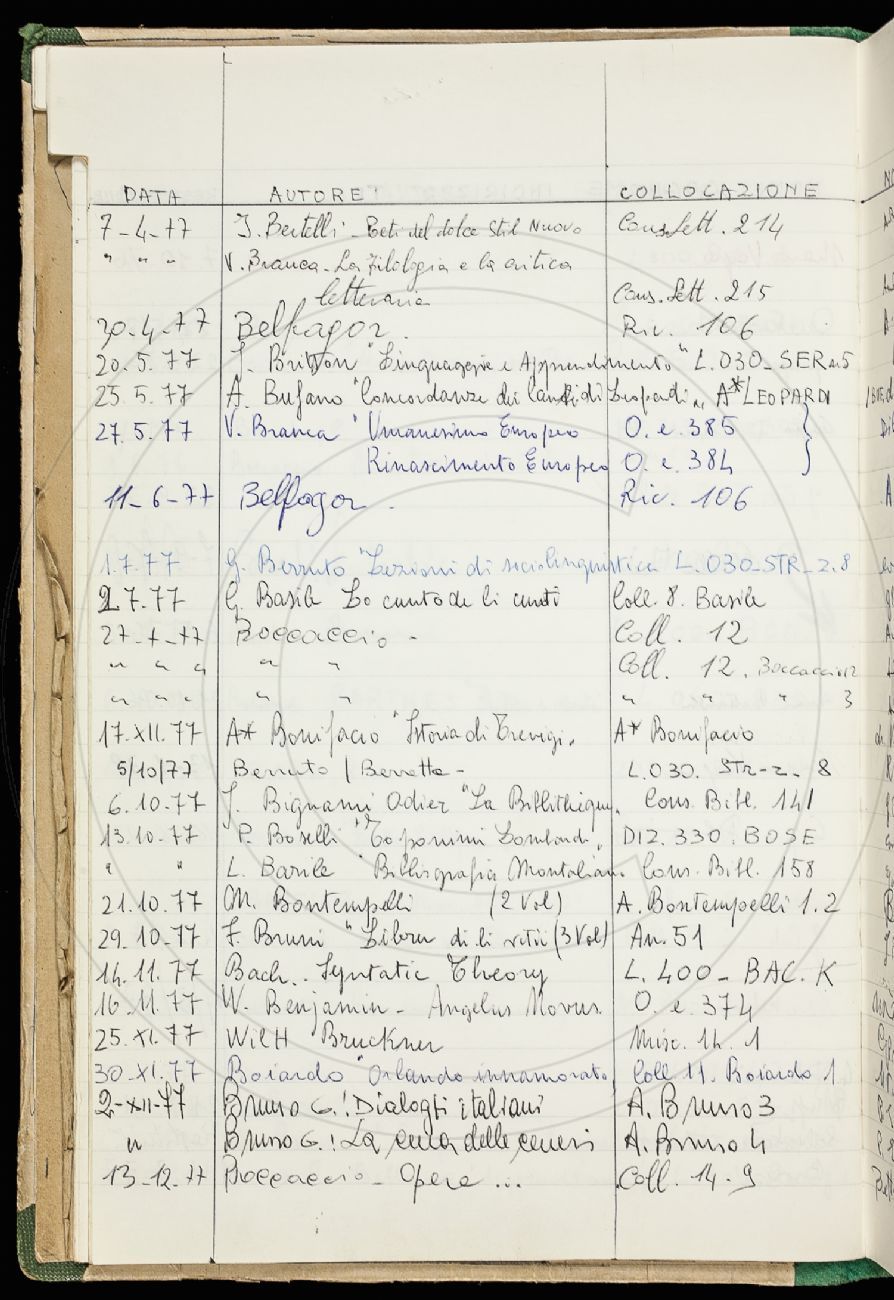 DATA AUTORE COLLOCAZIONE
7-4-77 I. Bertelli - Poeti del dolce Stil Nuovo Cons. Lett. 214
" " " V. Branca - La Filologia e la critica
letteraria Cons. Lett. 215
30.4.77 Belfagor. Riv. 106
20.5.77 J. Britton "Linguaggio e Apprendimento" L.030-SER 25
25.5.77 A. Bufano "Concordanze dei Canti di Leopardi" A* LEOPARDI
27.5.77 V. Branca "Umanesimo Europeo O.e. 385
Rinascimento Europeo O.e. 384
11-6-77 Belfagor. Riv. 106
1.7.77 G. Berruto "Lezioni di sociolinguistica L.030-STR-2.8
2.7.77 G. Basile Lo cunto de li cunti Coll. 8. Basile
27-7-77 Boccaccio - Coll. 12
" " " " " Coll. 12. Boccaccio 12
" " " " " " " " 3
17.XII.77 A* Bonifacio "Istoria di Trevigi" A* Bonifacio
5/10/77 Berruto / Berretta - L.030. STR-2. 8
6.10.77 J. Bignami Odier "La Bibliothèque" Cons. Bibl. 141
13.10.77 P. Boselli "Toponimi Lombardi" DIZ. 330. BOSE
" " L. Barile "Bibliografia Montaliana Cons. Bibl. 158
21.10.77 M. Bontempelli (2 Vol) A. Bontempelli 1.2
29.10.77 F. Bruni "Libru di li vitii (3 Vol) An. 51
14.11.77 Bach.. Syntatic Theory L. 400-BAC.K
16.11.77 W. Benjamin - Angelus Novus. O.e. 374
25.XI.77 WilH Bruckner Misc. 14. 1
30.XI.77 Boiardo "Orlando innamorato" Coll. 11. Boiardo 1
2-XII-77 Bruno G.: Dialoghi italiani A. Bruno 3
" Bruno G.: La cena delle ceneri A. Bruno 4
13-12.77 Boccaccio - Opere ... Coll. 14.9